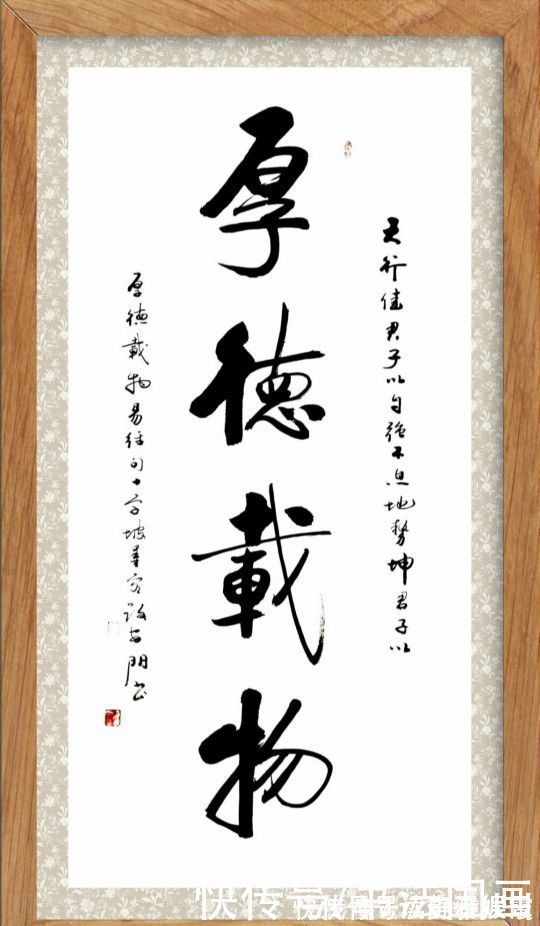 天行健君子以自強不息地勢坤君子以
厚德載物
厚德載物易经句十字坡
快传号/